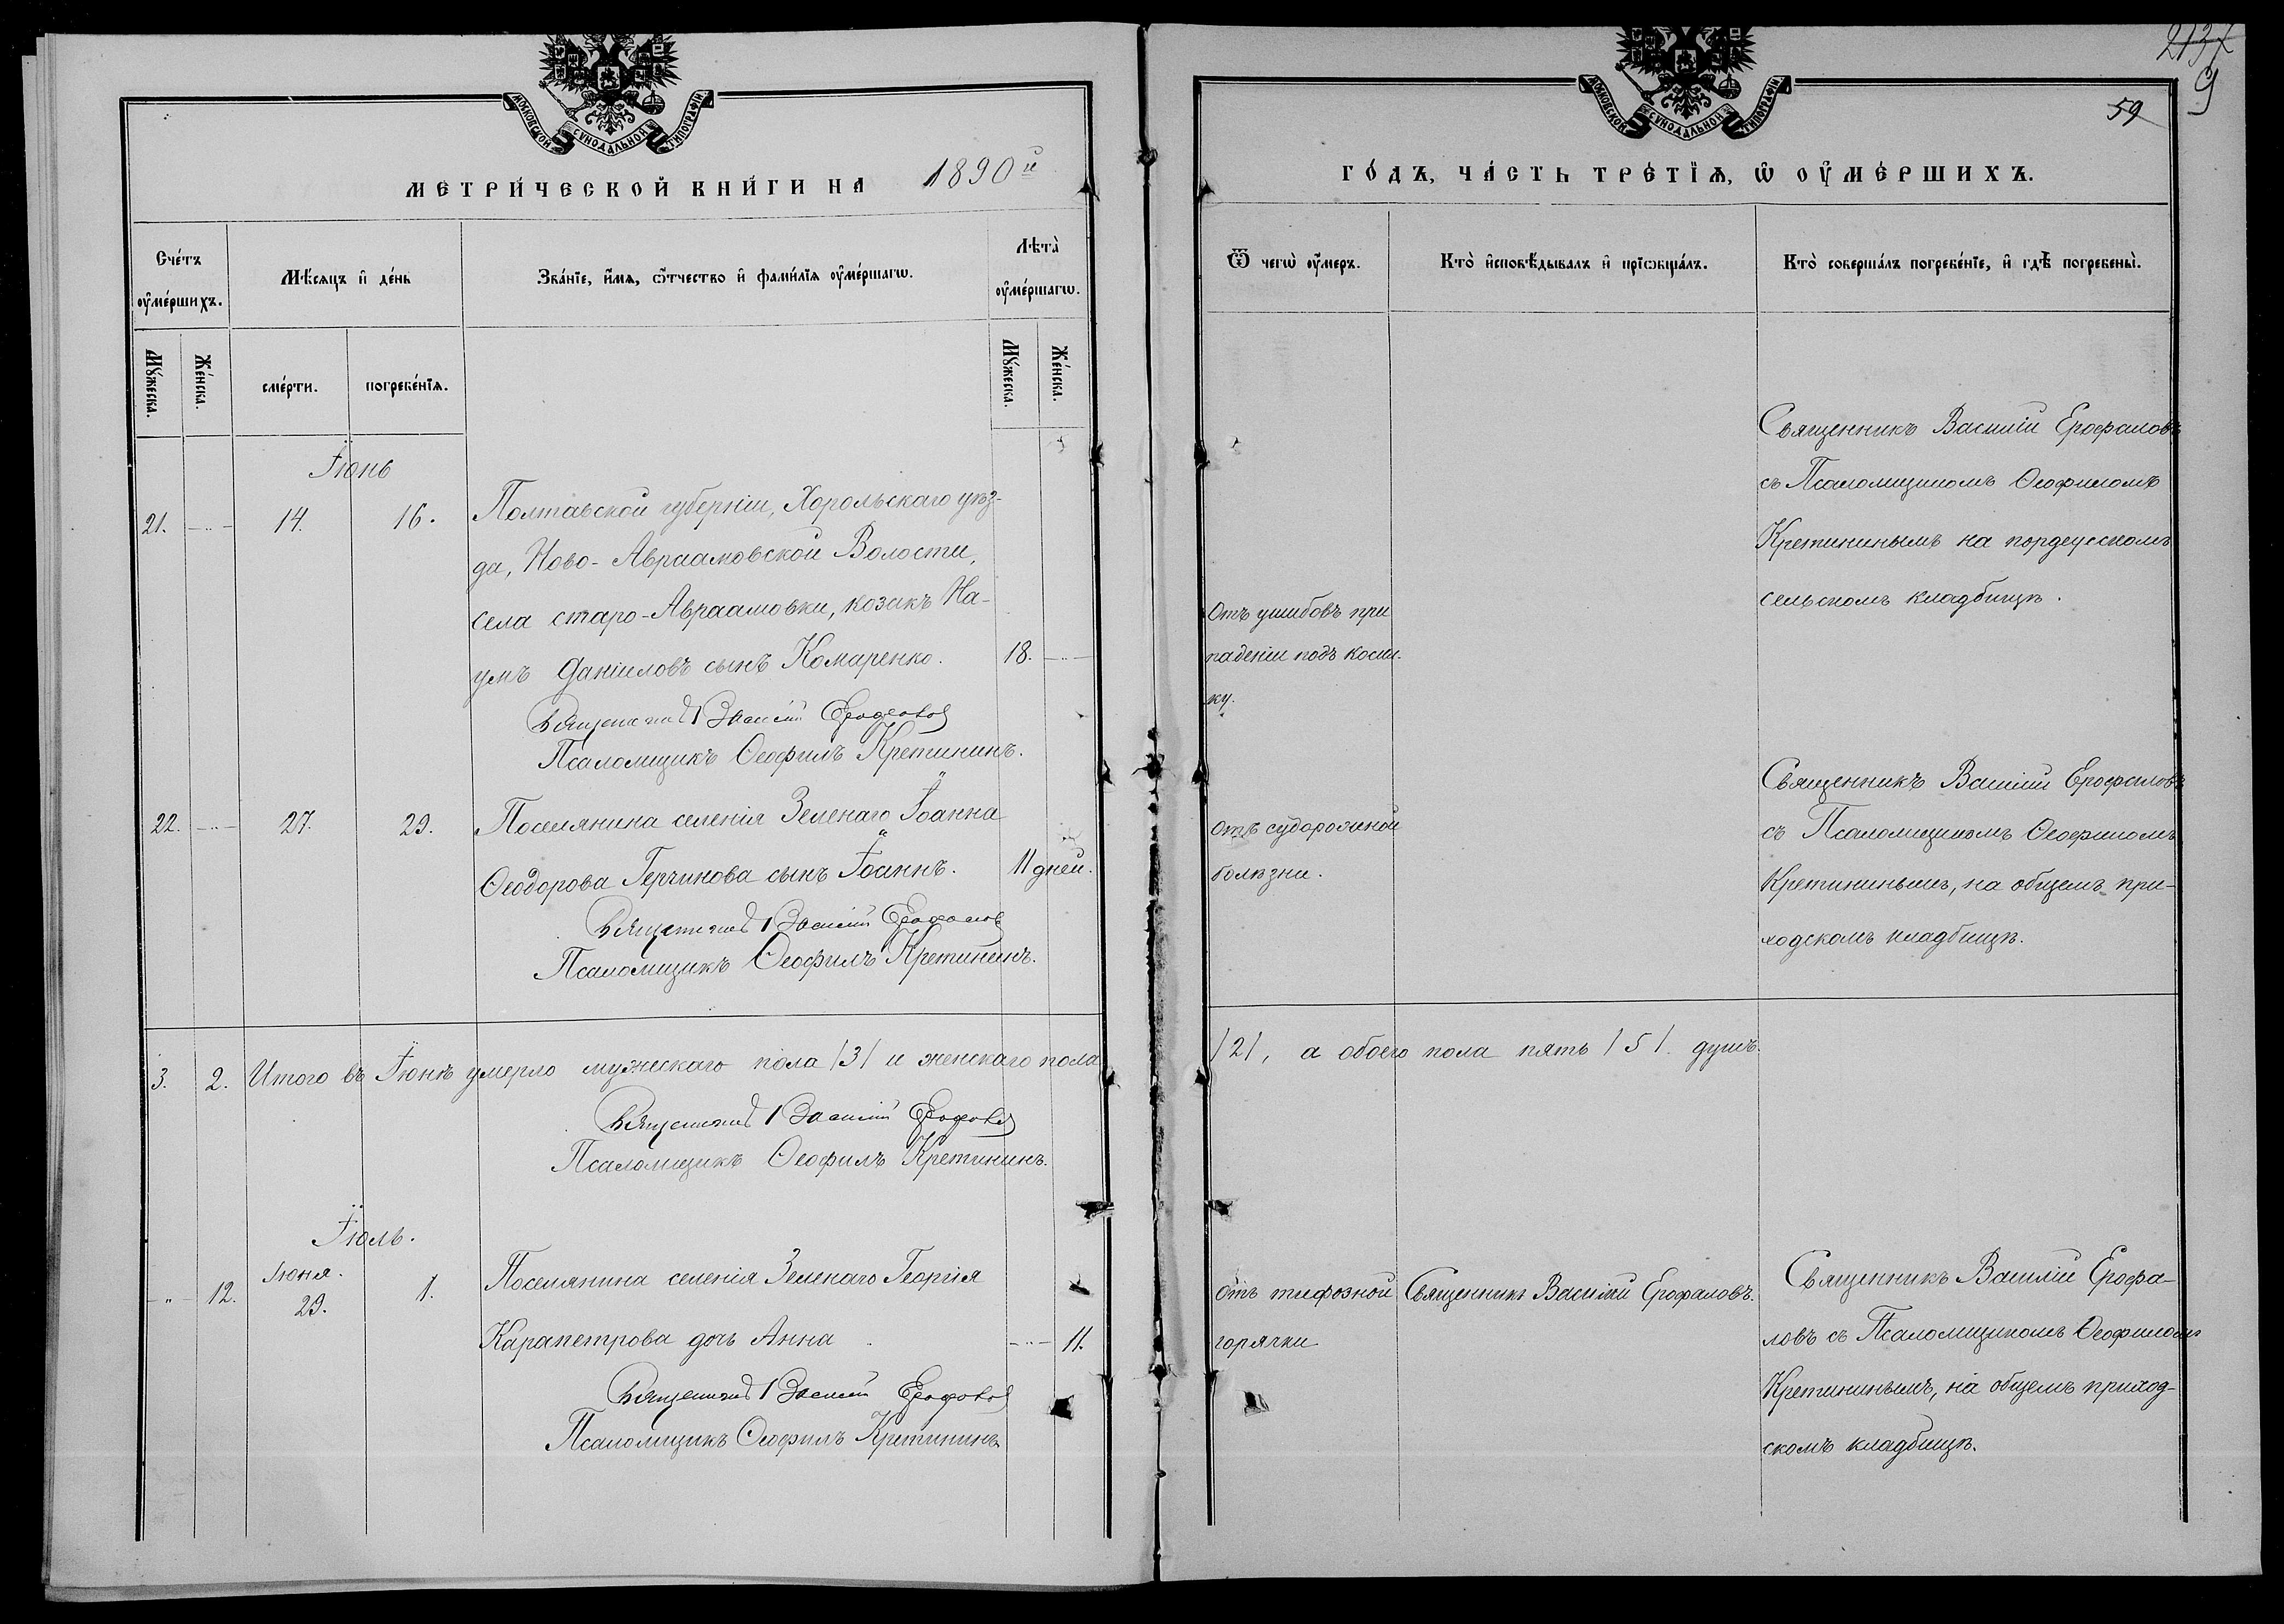 МОСКОВСКОЙ СѴНОДАЛЬНОЙ ТИПОГРАФІИ
МЕТРИ́ЧЕСКОЙ КНИ́ГИ НА 1890й
Сче́тъ оу҆ме́ршихъ.
Мѣ́сяцъ и҆ де́нь
Зва́нїе, и҆́мѧ, ѻ҆́тчество и҆ фами́лїѧ оу҆ме́ршагѡ.
Лѣта̀ оу҆ме́ршагѡ.
Мꙋ́жеска.
Же́нска.
сме́рти.
погребе́нїѧ.
Мꙋ́жеска.
Же́нска.
Іюнь
21. —„— 14. 16. Полтавской губерніи, Хорольскаго уѣз-
да, Ново-Авраамовской Волости,
села старо-Авраамовки, козакъ На-
умъ Даніиловъ сынъ Комаренко. 18. —„—
Священникъ Василій Ерофаловъ
Псаломщикъ Ѳеофилъ Кретининъ.
22. —„— 27. 29. Поселянина селенія Зеленаго Іоанна
Ѳеодорова Герчикова сынъ Іоаннъ. 11 дней.
Священникъ Василій Ерофаловъ
Псаломщикъ Ѳеофилъ Кретининъ.
3. 2. Итого въ Іюнѣ умерло мужескаго пола /3/ и женскаго пола
Священникъ Василій Ерофаловъ
Псаломщикъ Ѳеофилъ Кретининъ.
Іюль.
—„— 12. Іюня. 29. 1. Поселянина селенія Зеленаго Георгія
Карапетрова дочь Анна —„— 11.
Священникъ Василій Ерофаловъ
Псаломщикъ Ѳеофилъ Кретининъ
МОСКОВСКОЙ СѴНОДАЛЬНОЙ ТИПОГРАФІИ
59
9
ГО́ДЪ, ЧА́СТЬ ТРЕ́ТЇѦ, Ѡ ОУ҆МЕ́РШИХЪ.
Ѿ чегѡ̀ оу҆́меръ.
Кто̀ и҆сповѣ́дывалъ и҆ прїѡбща́лъ.
Кто̀ соверша́лъ погребе́нїе, и҆ гдѣ̀ погребены̀.
Священникъ Василій Ерофаловъ
съ Псаломщикомъ Ѳеофиломъ
Кретининымъ на
сельскомъ кладбищѣ.
Отъ ушибовъ при
паденіи подъ косил-
ку.
Священникъ Василій Ерофаловъ
съ Псаломщикомъ Ѳеофиломъ
Кретининымъ, на общемъ при-
ходскомъ кладбищѣ.
Отъ судорожной
болѣзни.
/2/, а обоего пола пять /5/. душъ.
Отъ тифозной
горячки
Священникъ Василій Ерофаловъ.
Священникъ Василій Ерофа-
ловъ съ Псаломщикомъ Ѳеофиломъ
Кретининымъ, на общемъ приход-
скомъ кладбищѣ.